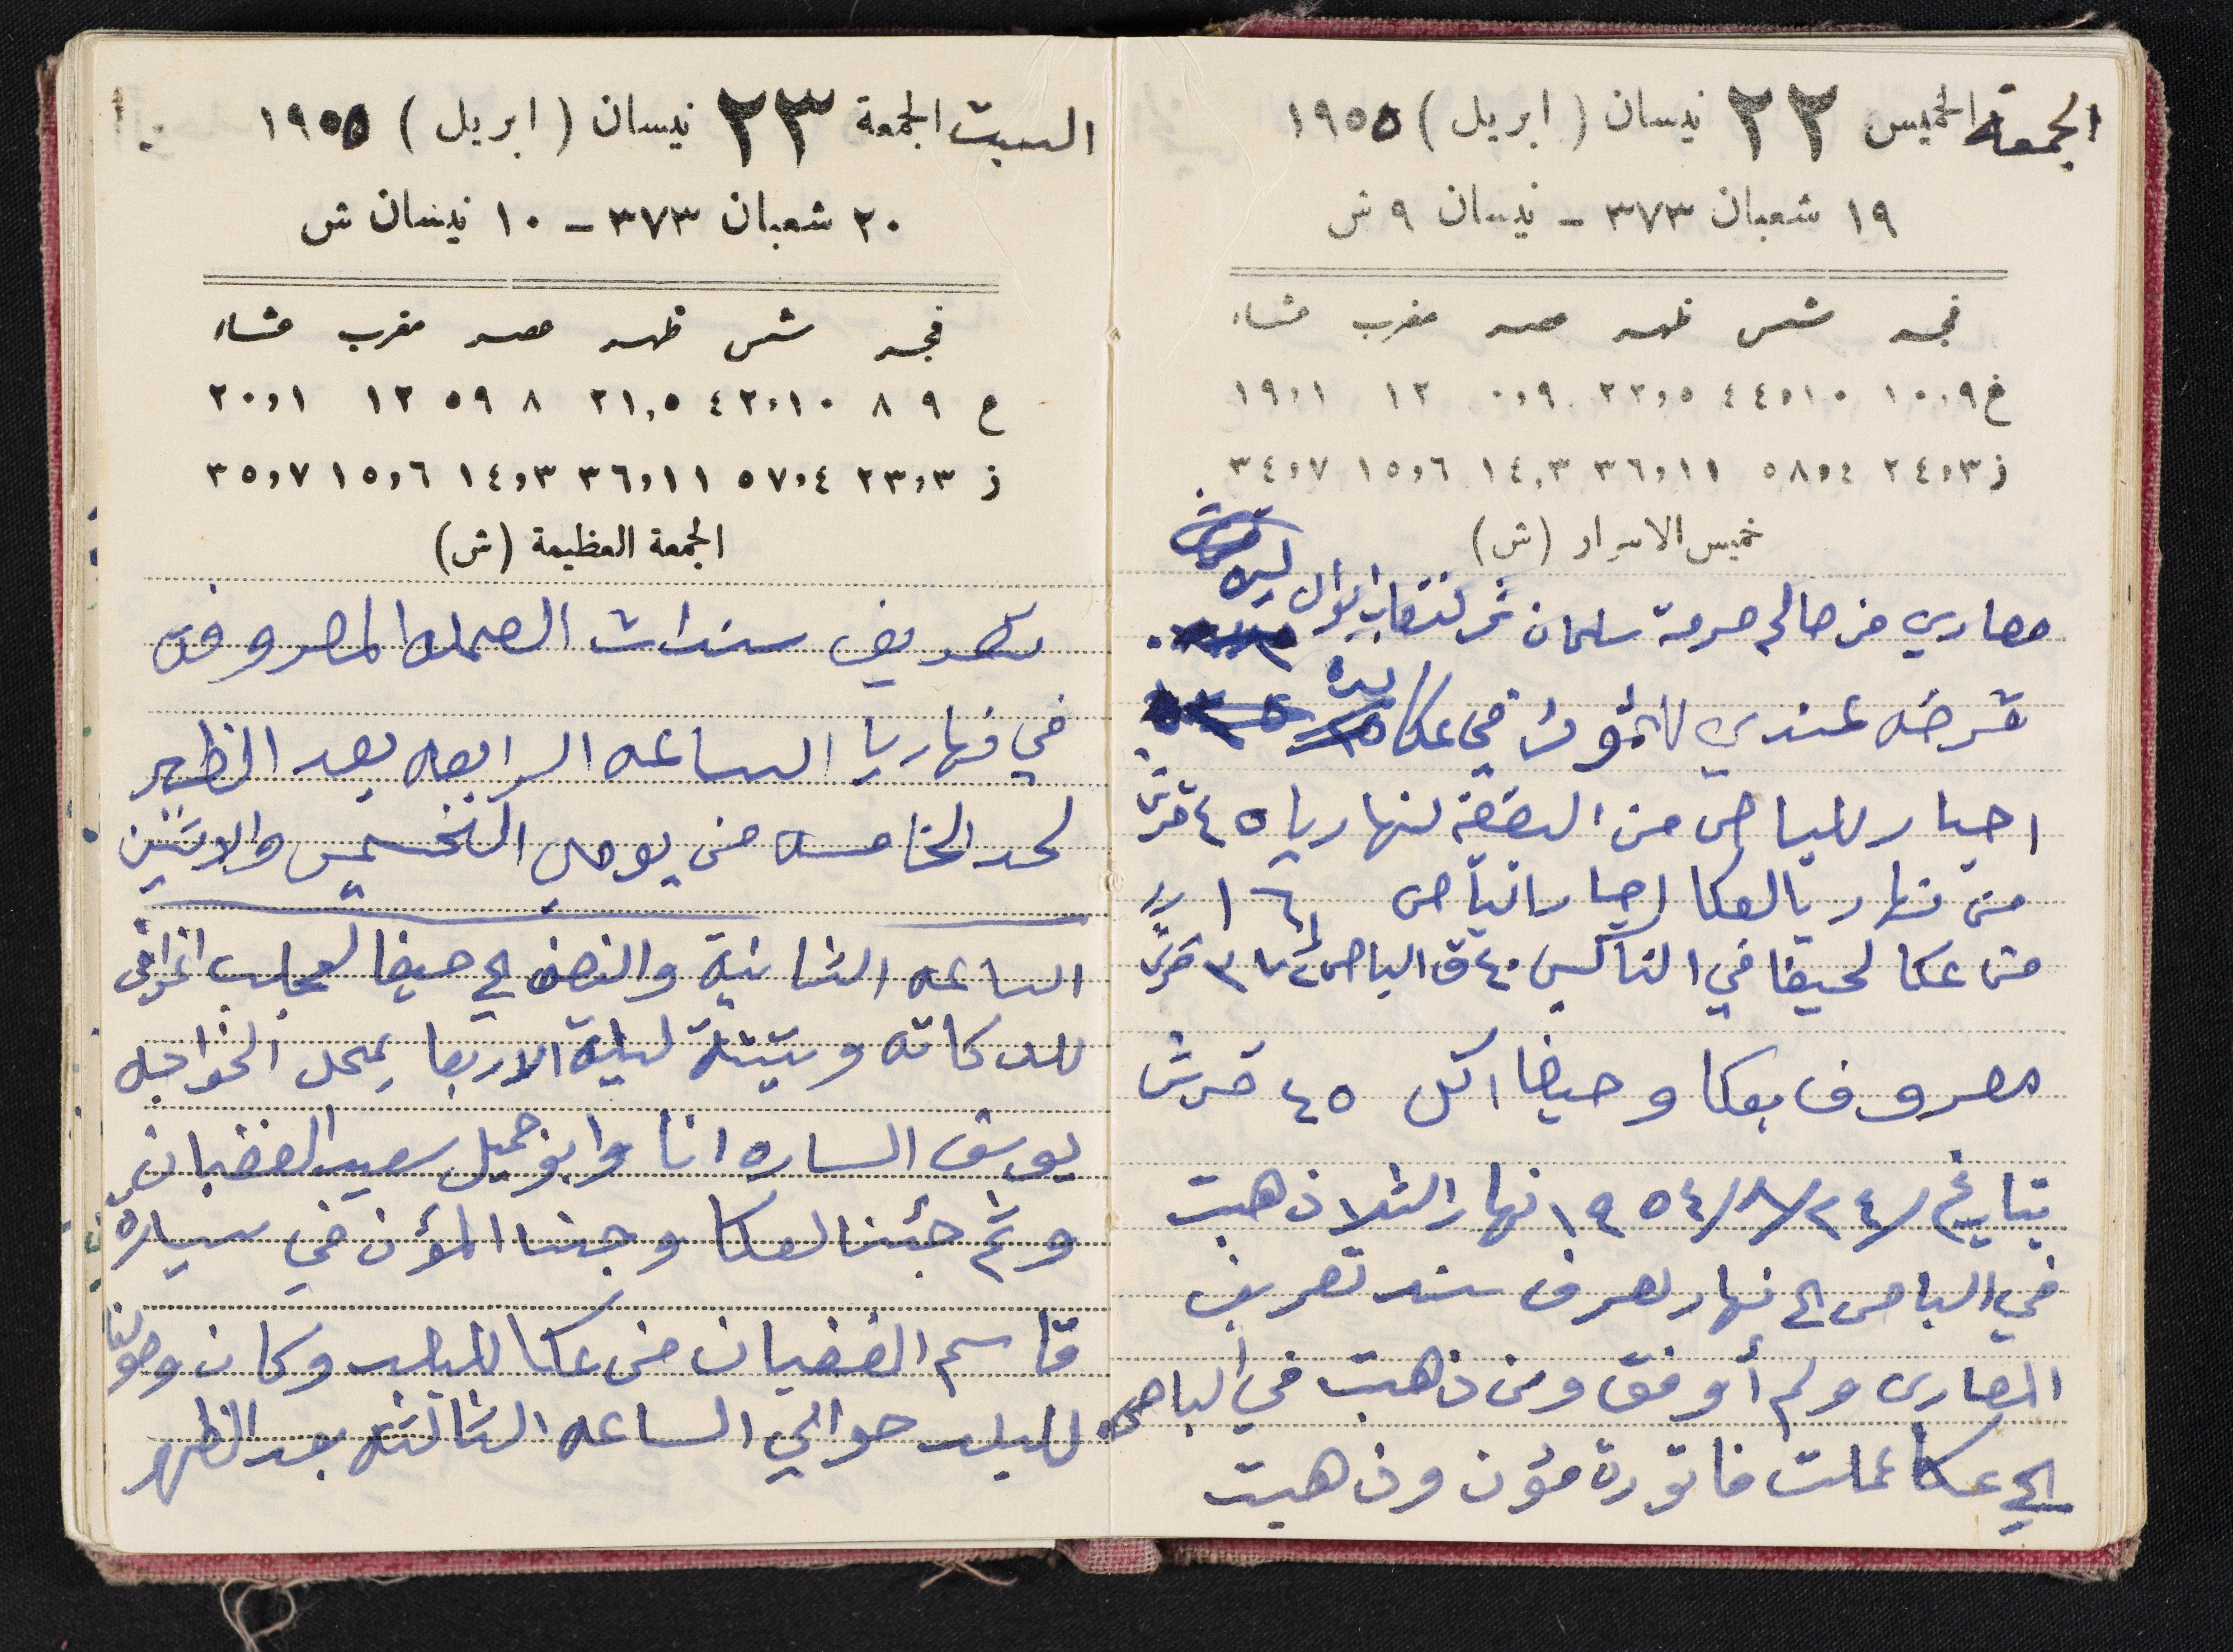 الجمعة الخميس ٢٢ نيسان (ابريل) ١٩٥٥
١٩ شعبان ٣٧٣ - نيسان ٩ ش
فجر شمس ظهر عصر مغرب عشاء
غ ١٠،٩ ٤٤،١٠ ٢٢،٥ ٠،٩ ١٢ ١٩،١
ز ٢٤،٣ ٥٨،٤ ٣٦،١١ ١٤،٣ ١٥،٦ ٣٤،٧
خميس الاسرار (ش)
مصاري من صالح حرمة سلمان
قرضه عندي في عكا
اجار للباص من البقيعة لنهاريا ٤٥ قرش
من نهاريا لعكا اجار الباص ١٦
من عكا لحيفا في التاكسي ٤٠ ق الباص قرش
مصروف بعكا وحيفا اكل ٤٥ قرش
بتاريخ ١٩٥٤/٨/٢٤ نهار الثلاذهبت
في الباص الى نهار لصرف سند تصريف
المصاري ولم أوفق ومن ذهبت في الباص
الى عكا عملت فاتورة مؤن وذهبت
السبت الجمعة ٢٣ نيسان (ابريل) ١٩٥٥
٢٠ شعبان ٣٧٣ - ١٠ نيسان ش
فجر شمس ظهر عصر مغرب عشاء
ع ٩ ٨ ٤٢،١٠ ٢١،٥ ٨ ٥٩ ١٢ ٢٠،١
ز ٢٣،٣ ٥٧،٤ ٣٦،١١ ١٤،٣ ١٥،٦ ٣٥،٧
الجمعة العظيمة (ش)
تصريف سندات العمله المصروفه
في نهاريا الساعه الرابعه بعد الظهر
لحد الخامسه من يومي الخميس والاثنين
الساعه الثانية والنصف الى حيفا لجلب اغراض
للدكانه وبيتنة ليلة الاربعا بمحل الخواجه
يوسف الساره انا وابو جميل سعيد الغضبان
وثم جئنا لعكا وجبنا المؤن في سيارة
قاسم الغضبان من عكا للبلد وكان وصولنا
للبلد حوالي الساعه الثالثه بعد الظهر